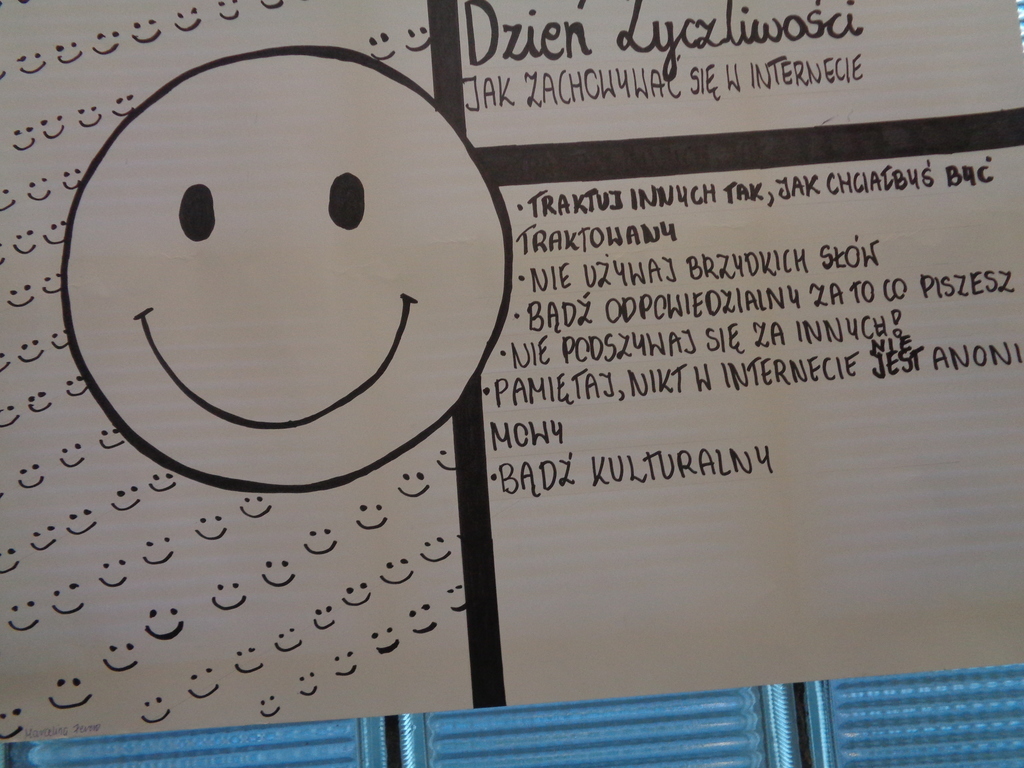 Dzień Życzliwości
JAK ZACHOWYWAĆ SIĘ W INTERNECIE
• TRAKTUJ INNYCH TAK, JAK CHCIAŁBYŚ BYĆ
TRAKTOWANY
• NIE UŻYWAJ BRZYDKICH SŁÓW
• BĄDŹ ODPOWIEDZIALNY ZA TO CO PISZESZ
• NIE PODSZYWAJ SIĘ ZA INNYCH!
• PAMIĘTAJ, NIKT W INTERNECIE NIE JEST ANONI
MOWY
• BĄDŹ KULTURALNY